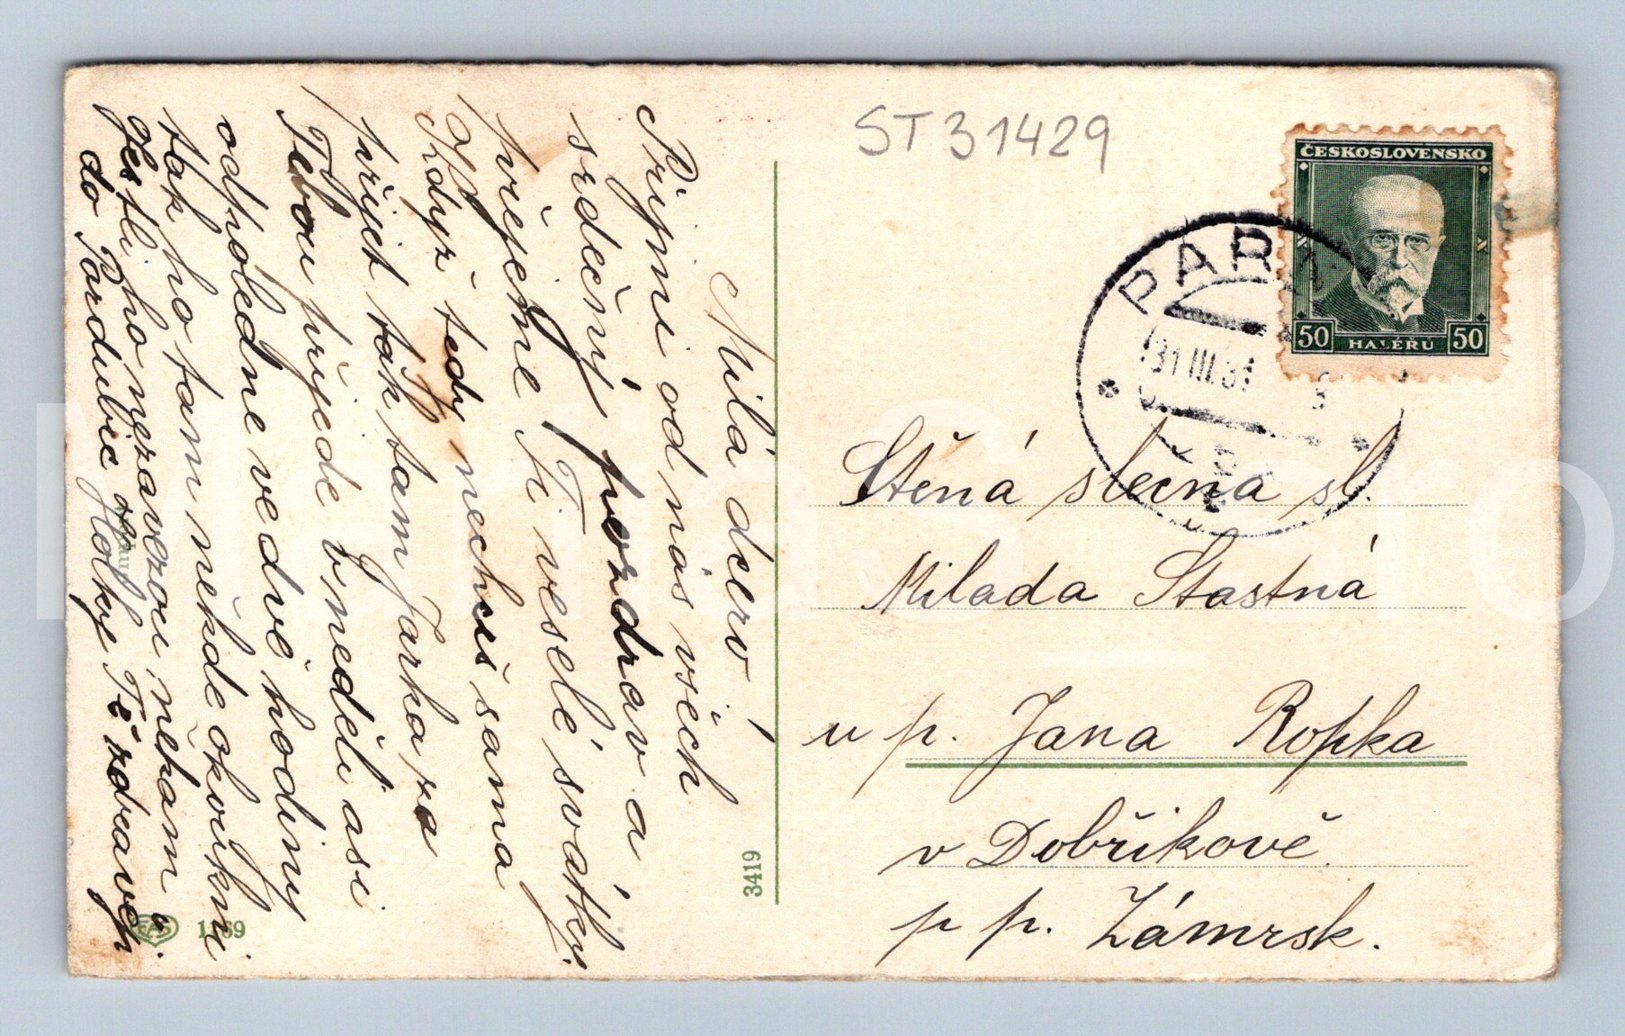 ST31429
ČESKOSLOVENSKO
50 HALÉŘŮ 50
PARD
31 III.31
Milá dcero!
Přijmi od nás všech
srdečný pozdrav a
přejeme Ti veselé svátky.
Když tedy nechceš sama
přijet tak tam Jarka za
Tebou přijede v neděli asi
odpoledne ve dvě hodiny
tak ho tam někde okřikni
jestli ho nezavezou někam
do Pardubic Holky Tě zdraví
Sťěná slečna sl.
Milada Stastná
u p. Jana Ropka
v Dobřikově
p p. Zámrsk.
3419
EAS 1169